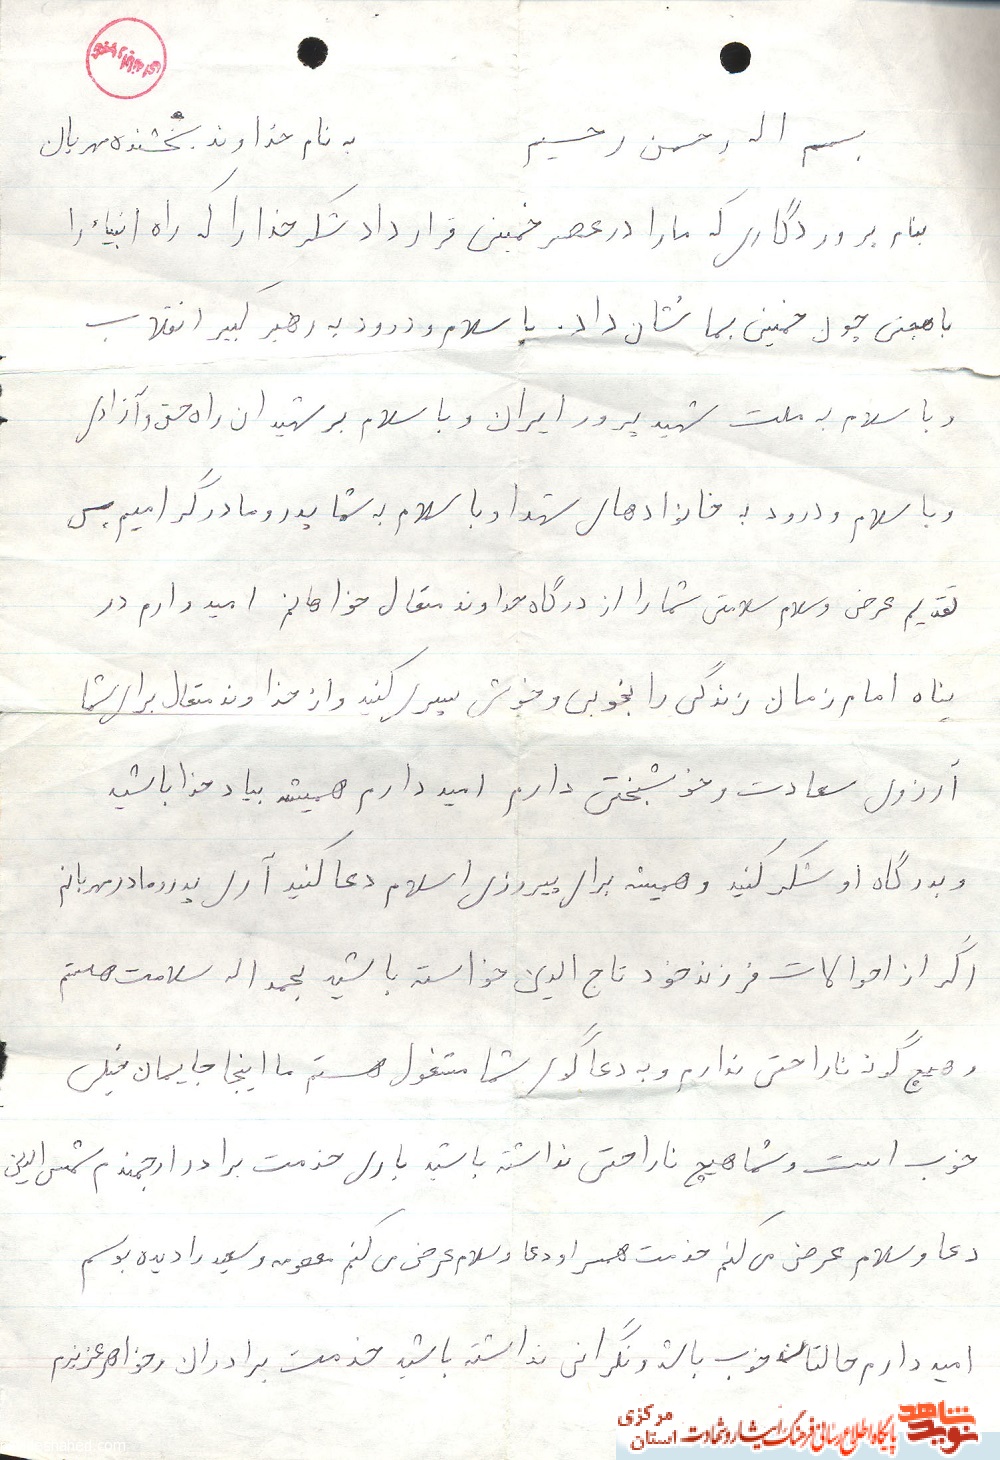 بسم اله رحمن رحیم به نام خداوند بخشنده مهربان
بنام پروردگاری که مارا در عصر خمینی قرار داد شکر خدا را که راه انبیاء را
با همچنی چون خمینی بما نشان داد. با سلام و درود به رهبر کبیر انقلاب
و با سلام به ملت شهید پرور ایران و با سلام بر شهیدان راه حق و آزادی
و با سلام و درود به خانوادهای شهدا و با سلام به شما پدر و مادر گرامیم پس
تقدیم عرض وسلام سلامتی شما را از درگاه خداوند متعال خواهانم امید وارم در
پناه امام زمان زندگی را بخوبی و خوش سپری کنید و از خداوند متعال برای شما
آرزوی سعادت و خوشبختی دارم امید دارم همیشه بیاد خدا باشید
و بدرگاه او شکر کنید و همیشه برای پیروزی اسلام دعا کنید آری پدر و مادر مهربانم
اگر از احوالات فرزند خود تاج الدین خواسته باشید بحمد اله سلامت هستم
و هیچ گونه ناراحتی ندارم و به دعا گوی شما مشغول هستم ما اینجا جایمان خیلی
خوب است و شما هیچ ناراحتی نداشته باشید باری خدمت برادر ارجمندم شمس الدین
دعا و سلام عرض می کنم خدمت همسر او دعا و سلام عرض می کنم معصومه و سعید را دیده بوسم
امید دارم حالتان خوب باشد و نگرانی نداشته باشید خدمت برادران و خواهر عزیزم
نوید شاهد
پایگاه اطلاع رسانی فرهنگ ایثار و شهادت
استان مرکزی